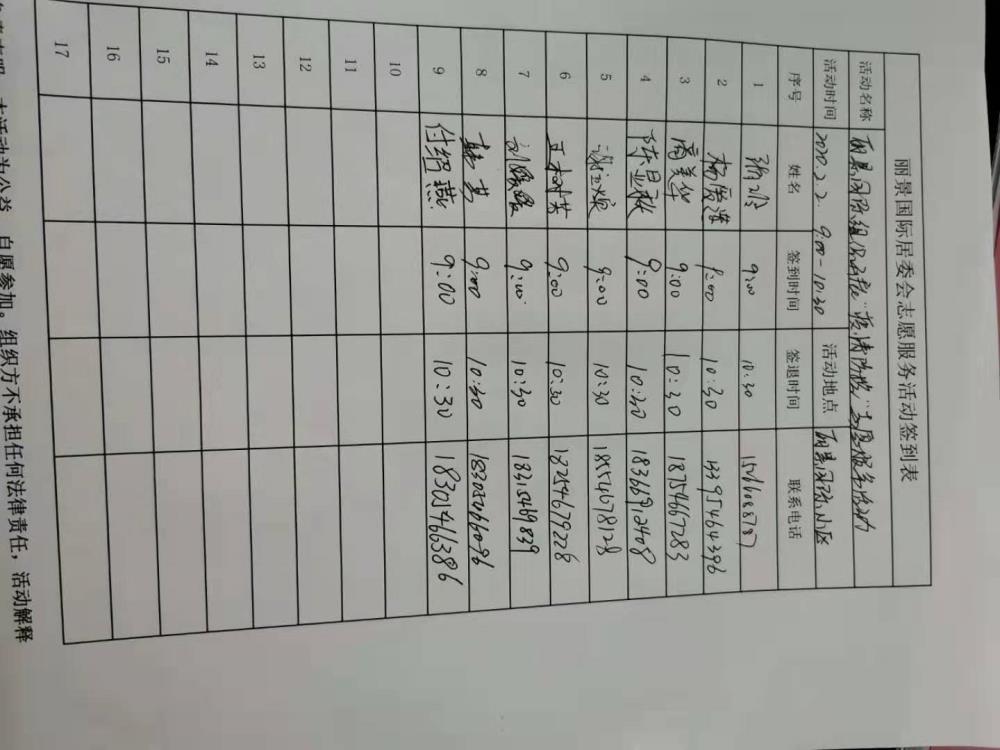 丽景国际居委会志愿服务活动签到表
活动名称 丽景国际组织开展"疫情防控"志愿服务活动
活动时间 2020.2.2. 9:00-10:30 活动地点 丽景国际小区
序号 姓名 签到时间 签退时间 联系电话
1 9:00 10:30
2 杨俊莲 9:00 10:30 13395464396
3 商美华 9:00 10:30 18754667283
4 陈显秋 9:00 10:30 18366912408
5 9:00 10:30 18554678128
6 王树英 9:00 10:30 18254679228
7 9:00 10:30
8 9:00 10:30 18305466096
9 付绍燕 9:00 10:30 18305466386
10
11
12
13
14
15
16
17
本活动为公益、自愿参加。组织方不承担任何法律责任，活动解释